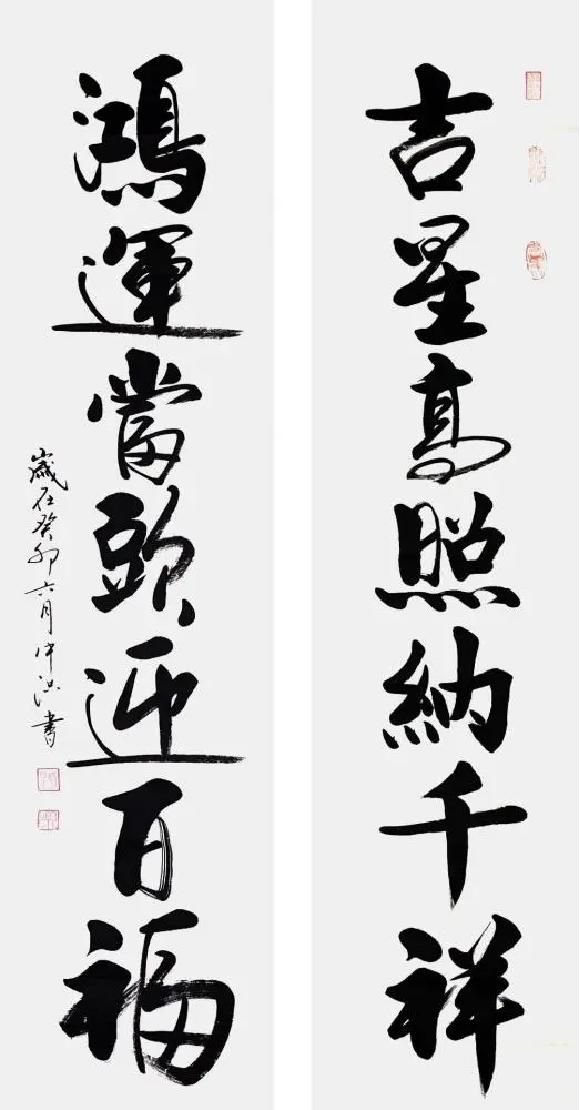 吉星高照納千祥
鴻運當頭迎百福
歲在癸卯六月仲書